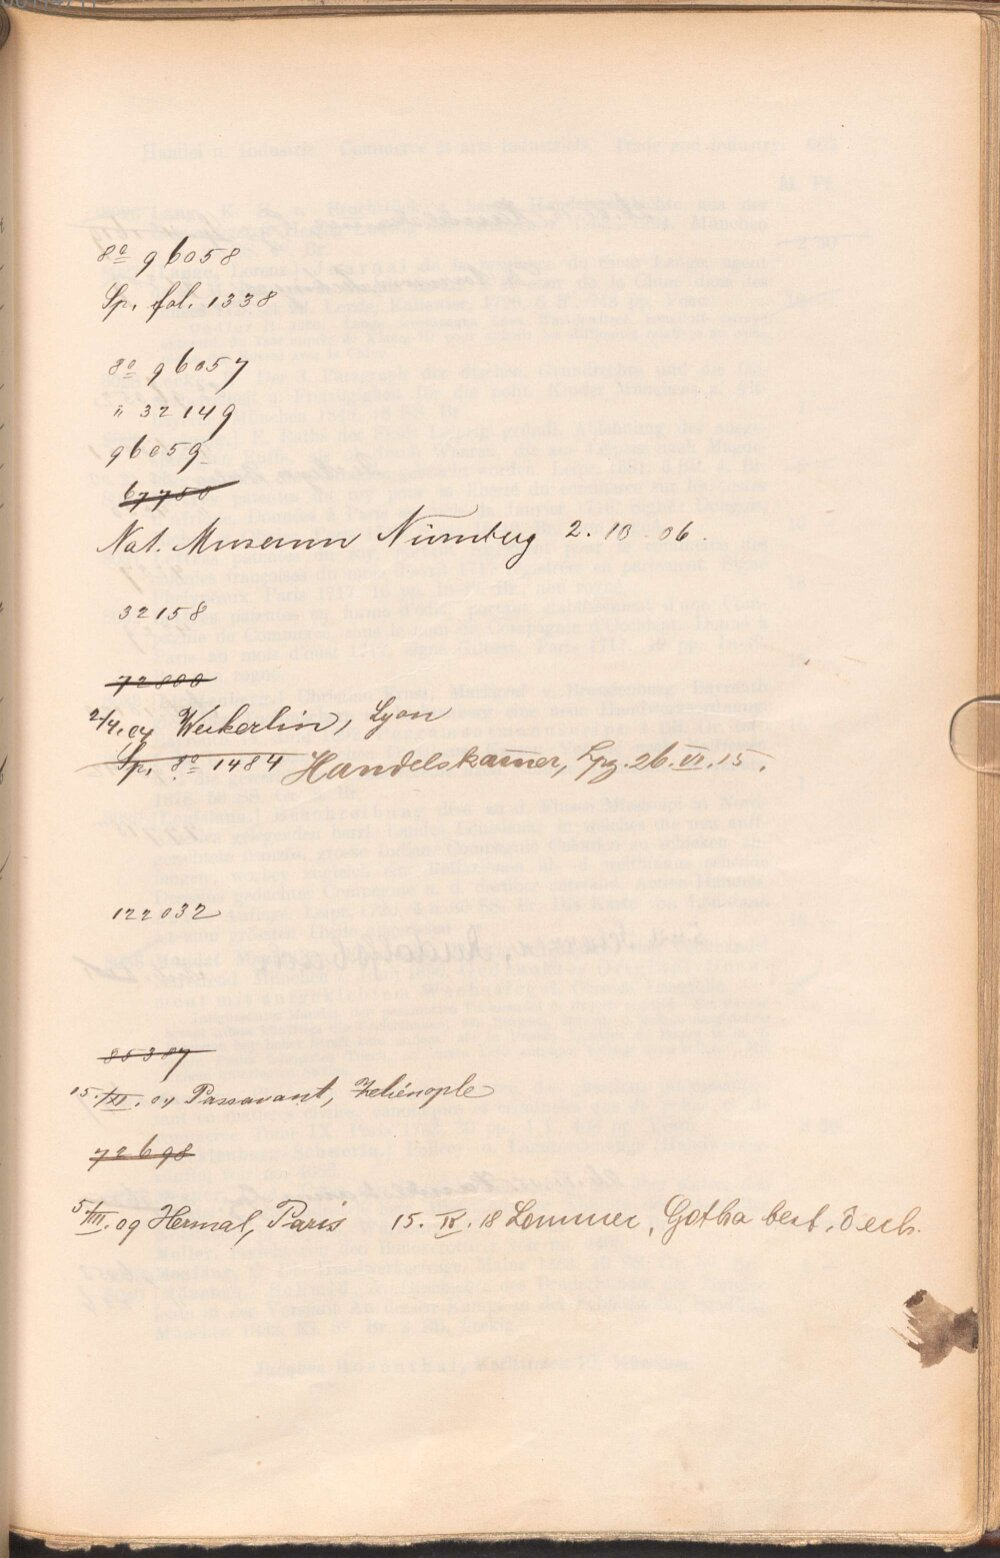 8º 96058
Sp. fol. 1338
8º 96057
" 32149
96059
67750
Nat. Museum Nürnberg 2. 10. 06.
32158
72800
2/4.07 Weckerlin, Lyon
Sp. 8º 1484 Handelskam̅er, Lpzg. 26. VI. 15.
122032
85387
15./XI. 07 Passavant, Zeliénople
72698
5/III. 09 Hermal, Paris 15. IX. 18 Lommer, Gotha